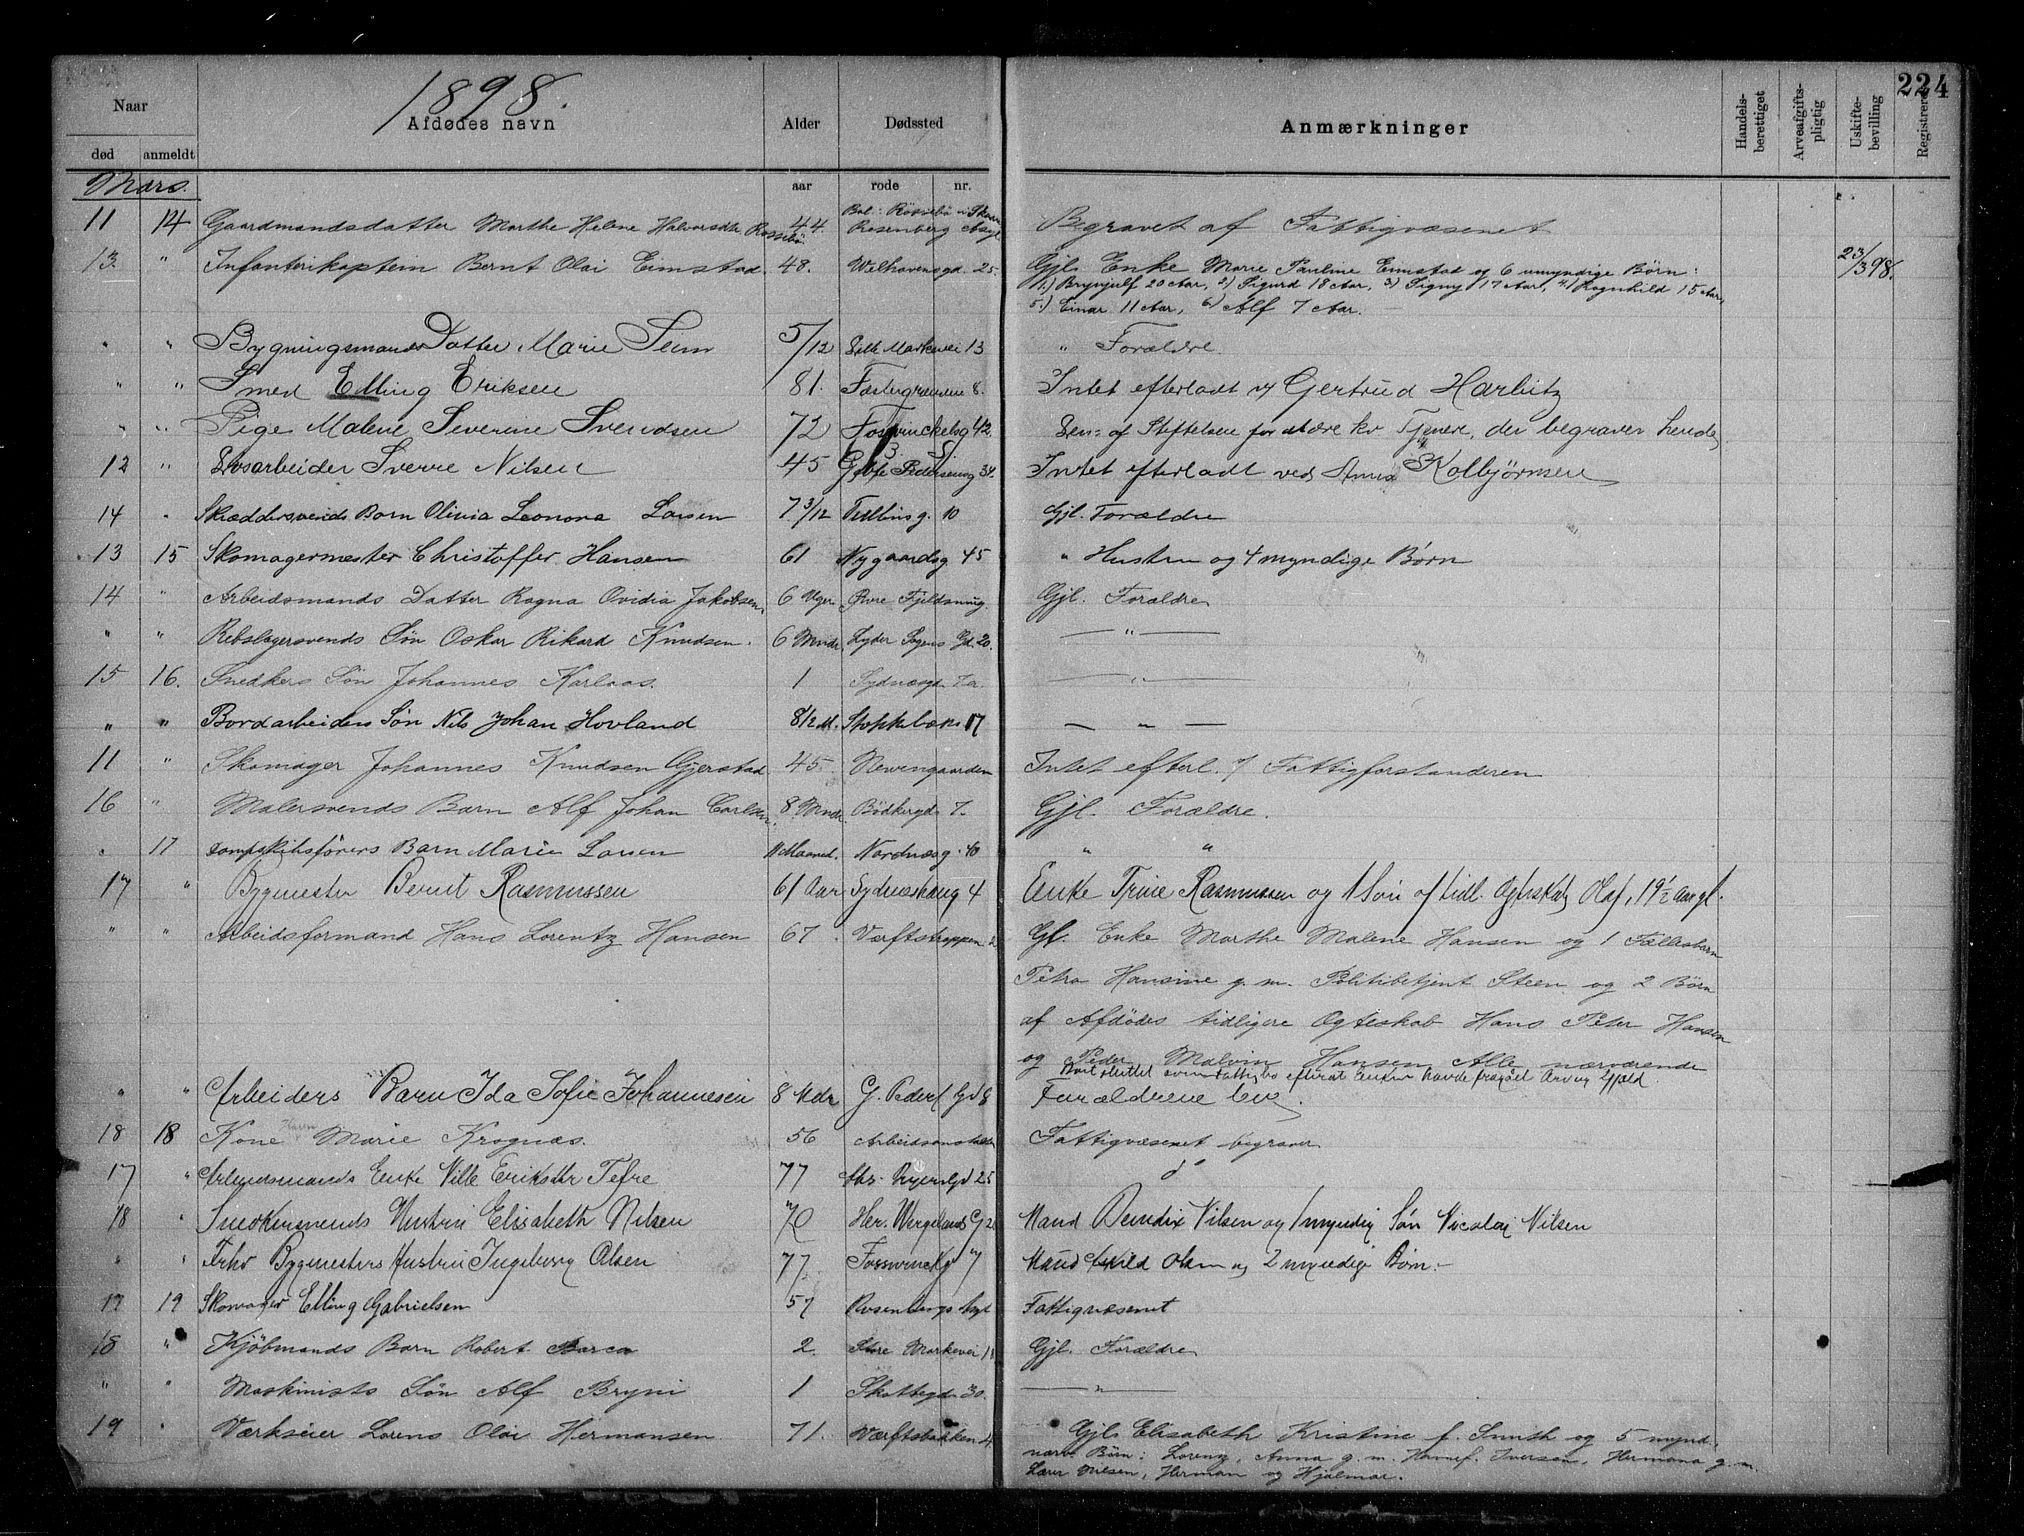 1898.
224
Naar
Afdødes navn
Alder
Dødssted
Anmærkninger
Handels-berettiget
Arveafgifts-pligtig
Uskifte-bevilling
Registreret
død anmeldt
aar rode nr.
Mars.
11 14 Gaardmandsdatter Marthe Helene Halvorsdtr Røssebø 44. Rosenberg Asyl Begravet af Fattigvæsenet
13 " Infanterikaptein Bernt Olai Eimstad. 48. Welhavensgd. 25. Gjl. Enke Marie Pauline Eimstad og 6 umyndige Børn: 23/3 98.
1) Brynjulf 20 Aar, 2) Sigurd 18 Aar, 3) Signy 17 Aar, 4) Ragnhild 15 Aar
5.) Einar 11 Aar, 6) Alf 7 Aar.
" " Bygningsmands Datter Marie Seim 5/12 Lille Markevei 13 " Forældre.
" " Smed Elling Eriksen 81. 8. Intet efterladt v/ Gertrud Harbitz
" " Pige Malene Severine Svendsen 72 Fosswinckelsg 42. Len: af Stiftelsen for ældre kv Tjenere, der begraver hende
12 " Løsarbeider Sverre Nilsen 45 34. Intet efterladt ved Anna Kolbjørnsen
14 " Skræddersvends Barn Olivia Leonora Larsen 7 3/12 Tullins g. 10 Gjl. Forældre
13 15 Skomagermester Christoffer Hansen 61 Nygaardsg 45 " Hustru og 4 myndige Børn
14 " Arbeidsmands Datter Ragna Ovidia Jakobsen. 6 Uger Øvre Fjeldsmug. Gjl. Forældre
" " Rebslagersvends Søn Oskar Rikard Knudsen. 6 Mndr. Lyder Sagens Gd. 20. — " —
15 16. Snedkers Søn Johannes Karlaas. 1 Sydnesgd. 7a — " —
" " Bordarbeiders Søn Nils Johan Hovland 8 1/2 M. 17 — " —
11 " Skomager Johannes Knudsen Gjerstad 45 Nevengaarden Intet efterl. v/ Fattigforstanderen
16 " Malersvends Barn Alf Johan Carlsen. 8 Mndr. Bødkergd. 7. Gjl. Forældre.
" 17 Dampskibsførers Barn Marie Larsen 11 Maaned. Nordnæsg. 40 " "
17 " Bygmester Bernt Rasmussen 61 Aar Sydneshaug 4 Enke Trine Rasmussen og 1 Søn af tidl. Ægteskab, Olaf, 19½ Aar gl.
" " Arbeidsformand Hans Lorentz Hansen 67 Værftstrappen 2 Gl. Enke Marthe Malene Hansen og 1 Fællesbarn
Petra Hansine g. m. Politibetjent Steen og 2 Børn
af Afdødes tidligere Ægteskab Hans Peter Hansen
og Peder Malvin Hansen. Alle nærværende
Boet sluttet som Fattigbo efterat Enken havde fragaaet Arv og Gjæld.
" " Arbeiders Barn Ida Sofie Johannesen 8 Mdr G. Peders Gd 8 Forældrene lev.
18 18 Kone Karen Marie Krognæs. 56 Arbeidsanstalten Fattigvæsenet begraver
17 " Arbeidsmands Enke Ville Eriksdtr Tefre 77 25 do
18 " Snedkersvends Hustru Elisabeth Nilsen 70 Hen. Wergelands G 2 Mand Bendix Nilsen og 1 myndig Søn Nicolai Nilsen
" " Fhv Bygmesters Hustru Ingeborg Olsen 77. Fosswincksg 7 Mand Olsen og 2 myndige Børn.-
17 19 Skomager Elling Gabrielsen 57 Rosenbergs Asyl Fattigvæsenet
18 " Kjøbmands Barn Robert Barca 2. Store Markevei Gjl. Forældre
" " Maskinists Søn Alf Bryni 1 Skottegd 30. — " —
19 " Værkseier Lorens Olai Hermansen 71. Værftsbakken 4. Gjl. Elisabeth Kristine f. Smith og 5 mynd.
nærv. Børn: Lorenz, Anna g. m. Havnef. Iversen, Hermana g. m.
Lærer Nilsen, Herman og Hjalmar.